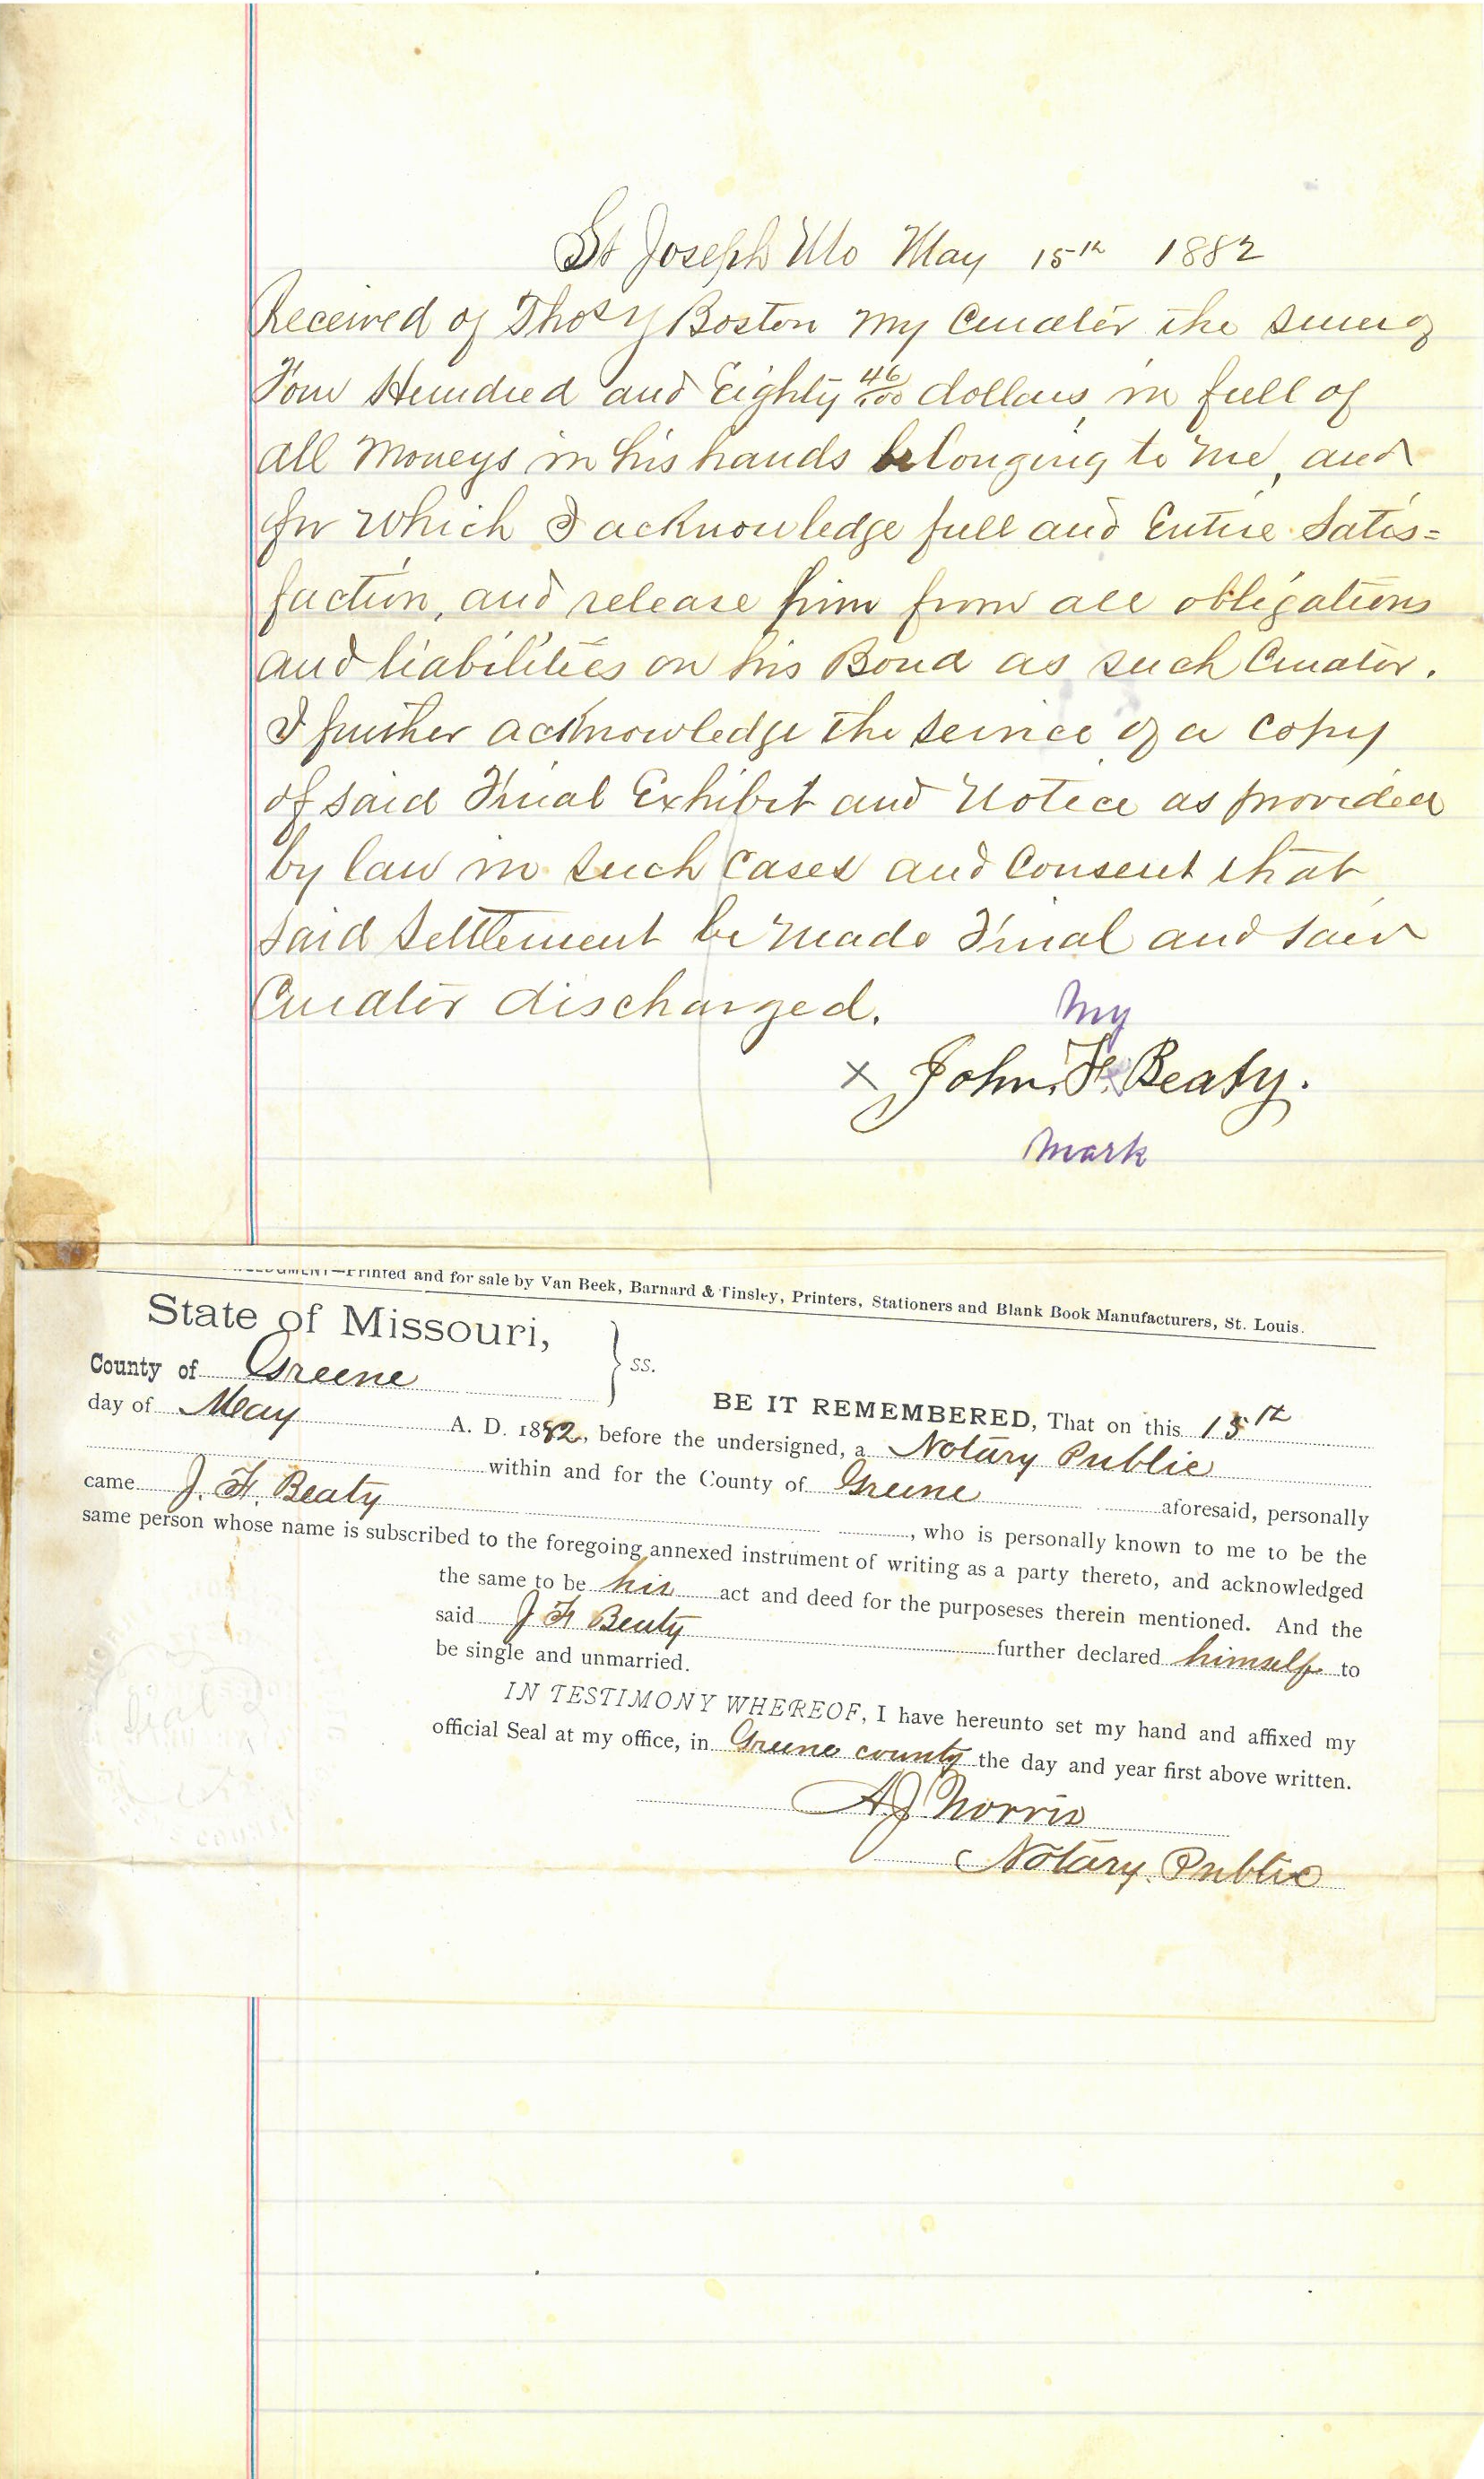 St Joseph Mo May 15th 1882
Received of Thos Y Boston my Curater the sum of
Four Hundred and Eighty 46/100 dollars, in full of
all moneys in his hands belonging to me, and
for which I acknowledge full and Entire Satis=
faction, and release him from all obligations
and liabilities on his Bond as such Curator.
I further acknowledge the service of a copy
of said Final Exhibit and Notice as provided
by law in such Cases and Consent that
said Settlement be made Final and said
Curater discharged.
My
× John. F. Beaty.
mark
Printed and for sale by Van Beek, Barnard & Tinsley, Printers, Stationers and Blank Book Manufacturers, St. Louis.
State of Missouri,
County of Greene } ss.
BE IT REMEMBERED, That on this 15th
day of May A. D. 1882, before the undersigned, a Notary Public
within and for the County of Greene aforesaid, personally
came J. F. Beaty , who is personally known to me to be the
same person whose name is subscribed to the foregoing annexed instrument of writing as a party thereto, and acknowledged
the same to be his act and deed for the purposeses therein mentioned. And the
said J F Beaty further declared himself to
be single and unmarried.
IN TESTIMONY WHEREOF, I have hereunto set my hand and affixed my
official Seal at my office, in Greene county the day and year first above written.
A J Norris
Notary Public